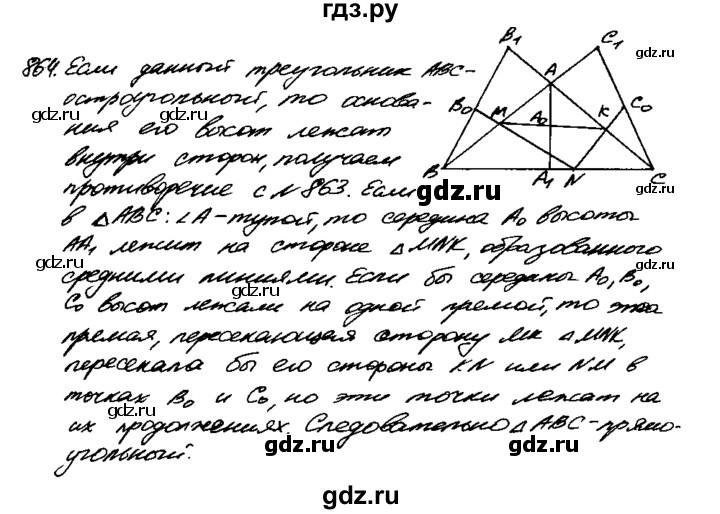 гдз.ру
864. Если данный треугольник ABC-
остроугольный, то основа-
ния его высот лежат
внутри сторон, получаем
противоречие с №863. Если
в △ABC: ∠A-тупой, то середина A₀ высоты
AA₁ лежит на стороне △MNK, образованного
средними линиями. Если бы середины A₀, B₀,
C₀ высот лежали на одной прямой, то эта
прямая, пересекающая сторону MK △MNK,
пересекала бы его стороны KN или NM в
точках B₀ и C₀, но эти точки лежат на
их продолжениях. Следовательно △ABC-прямо-
угольный.
B₁
C₁
A
B₀
M
A₀
K
C₀
B
A₁
N
C
gdz.ru
gdz.ru
gdz.ru
gdz.ru
gdz.ru
gdz.ru
gdz.ru
gdz.ru
gdz.ru
gdz.ru
gdz.ru
gdz.ru
gdz.ru